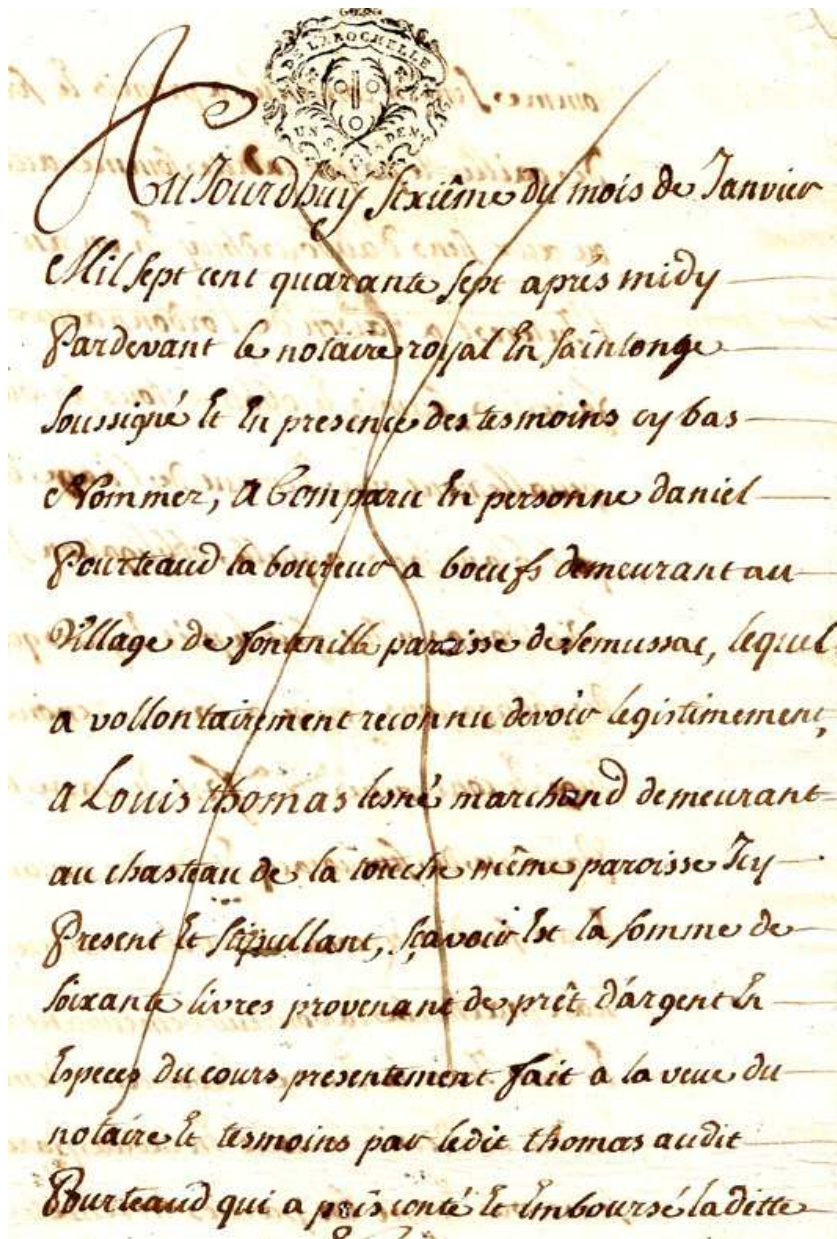 GEN
DE LA ROCHELLE
UN S. DEN
Aujourdhuy sixième du mois de Janvier
Mil sept cent quarante sept après midy
Pardevant le notaire royal En saintonge
soussigné Et En presence des tesmoins cy bas
Nommez, a Comparu En personne daniel
Pourteaud laboureur a boeufs demeurant au
Village de fontenille paroisse de semussac, lequel
a vollontairement reconnu devoir legistimement,
a Louis thomas lesné marchand demeurant
au chasteau de la touche même paroisse Icy
Present Et stipullant, sçavoir Est la somme de
soixante livres provenant de prêt d'argent En
Especes du cours presentement fait a la veue du
notaire Et tesmoins par ledit thomas audit
Pourteaud qui a pris conté Et Emboursé laditte